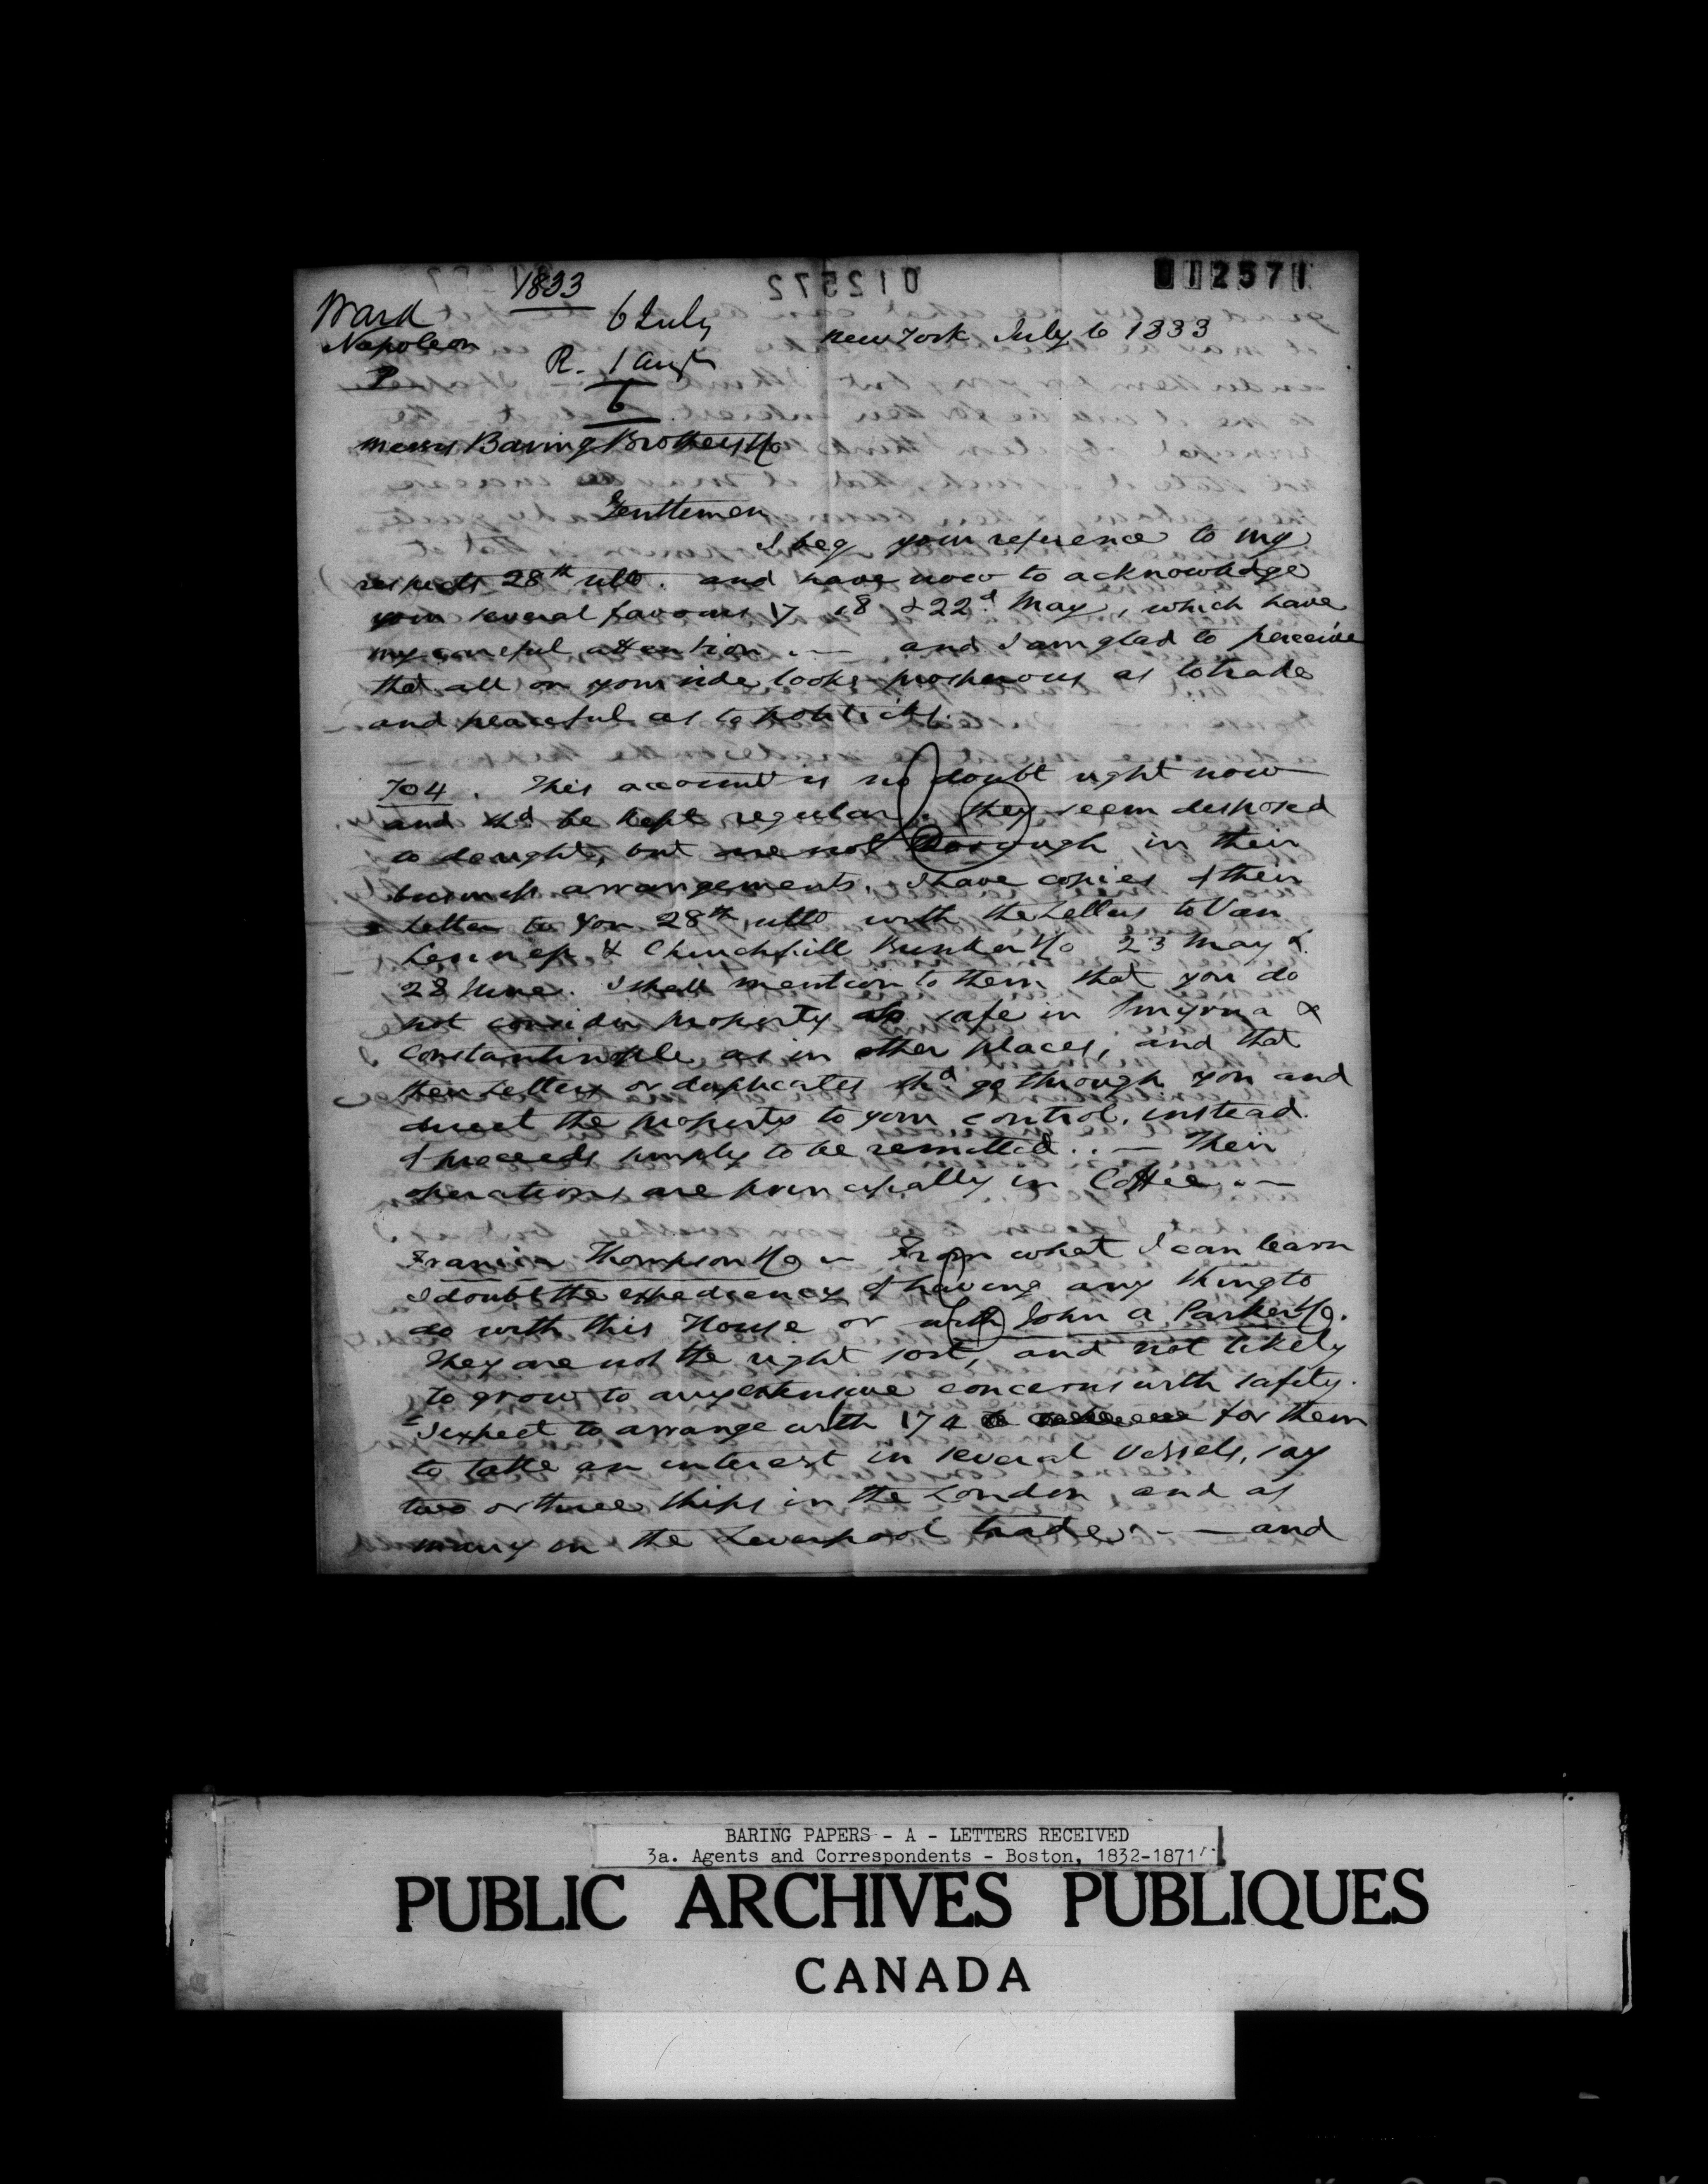 1833
012571
Ward
6 July
New York July 6 1833
Napoleon
R. 1 Augt
6
Messrs Baring Brothers & Co
Gentlemen
I beg your reference to my
respects 28th ulto. and have now to acknowledge
your several favours 17 18 & 22d May, which have
my careful attention. — and I am glad to perceive
that all on your side looks prosperous as to trade
and peaceful as to politicks.
704. This account is no doubt right now
and shd be kept regular. They seem disposed
to do right, but are not thorough in their
business arrangements. I have copies of their
Letter to you 28th ulto with the Letters to Van
Lennep & Churchill Bunker & Co 23 May &
28 June. I shall mention to them that you do
not consider property as safe in Smyrna &
Constantinople as in other places, and that
their Letters or duplicates shd go through you and
direct the property to your control, instead
of proceeds simply to be remitted.. — Their
operations are principally in Coffee. —
Francis Thompson & Co — From what I can learn
I doubt the expediency of having any thing to
do with this House or with John A Parker & Co.
They are not the right sort, and not likely
to grow to any extensive concerns with safety.
I expect to arrange with 174 for them
to take an interest in several vessels, say
two or three ships in the London, and as
many in the Liverpool trade. — and
BARING PAPERS - A - LETTERS RECEIVED
3a. Agents and Correspondents - Boston, 1832-1871
PUBLIC ARCHIVES PUBLIQUES
CANADA